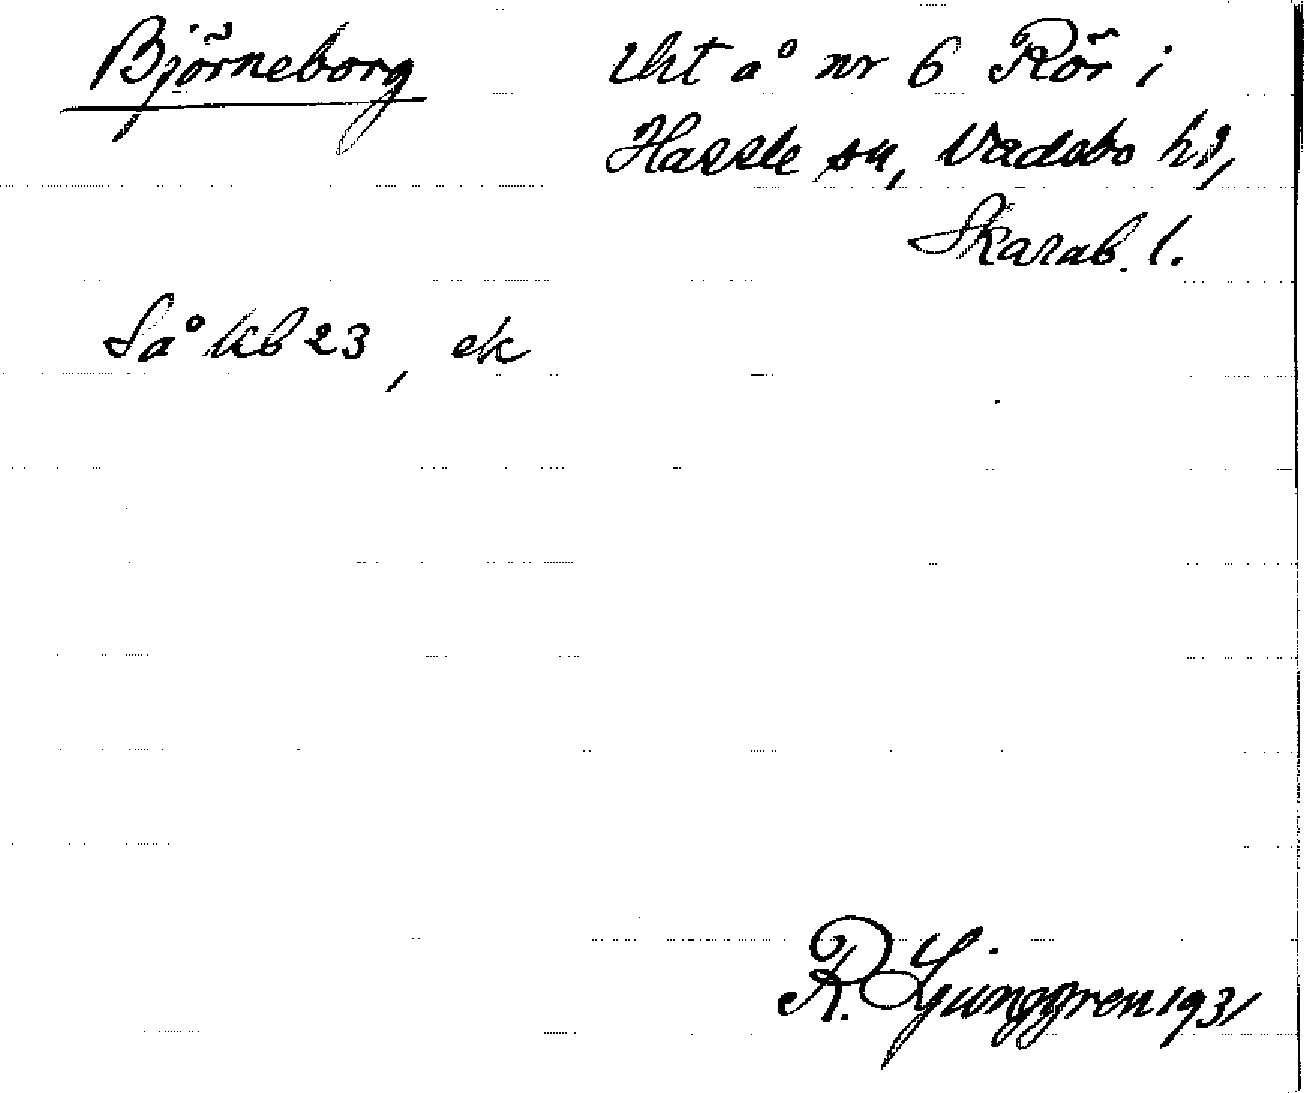 Björneborg
Uht å nr 6 Rör i
Hassle sn, Vadsbo hd,
Skarab. l.
Så kb 23, ek
R. Ljunggren 1931